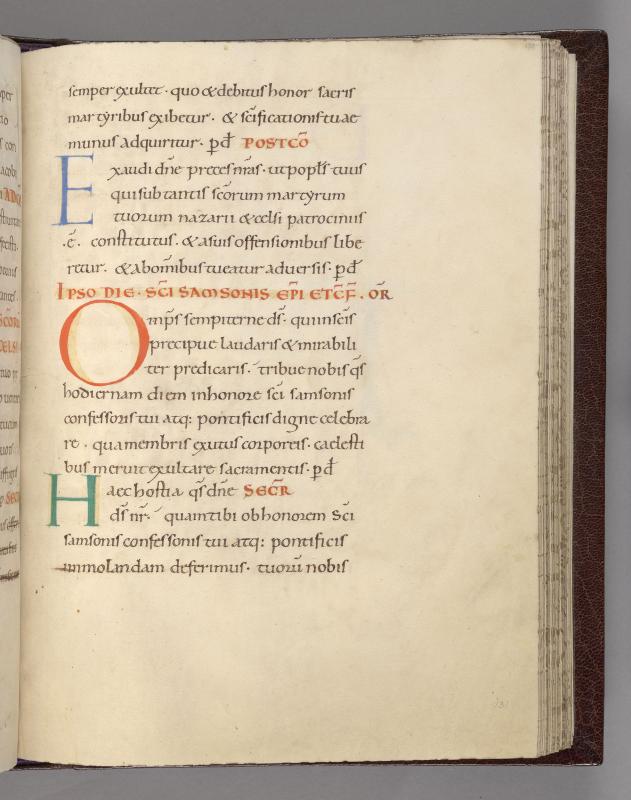 semper exultet · quo & debitus honor sacris
martyribus exibetur · & sc̄ificationis tuae
munus adquiritur · p̄ d̄ POSTCŌ
Exaudi dn̄e preces nr̄as · ut popl̄s tuus
qui sub tantis sc̄orum martyrum
tuorum nazarii & celsi patrociniis
· ē · constitutus · & a suis offensionibus libe
retur · & ab om̄ibus tueatur adversis · p̄ d̄
IPSO DIE · SC̄I SAMSONIS EP̄I ET C̄F̄ · OR̄
Omp̄s sempiterne ds̄ · qui in sc̄is
precipue laudaris & mirabili
ter predicaris · tribue nobis qs̄
hodiernam diem in honore sc̄i samsonis
confessoris tui atq: pontificis digne celebra
re · qua membris exutus corporeis · caelesti
bus meruit exultare sacramentis · p̄ d̄
Haec hostia qs̄ dn̄e SECR̄
ds̄ nr̄ · quam tibi ob honorem sc̄i
samsonis confessoris tui atq: pontificis
immolandam deferimus · tuorū nobis